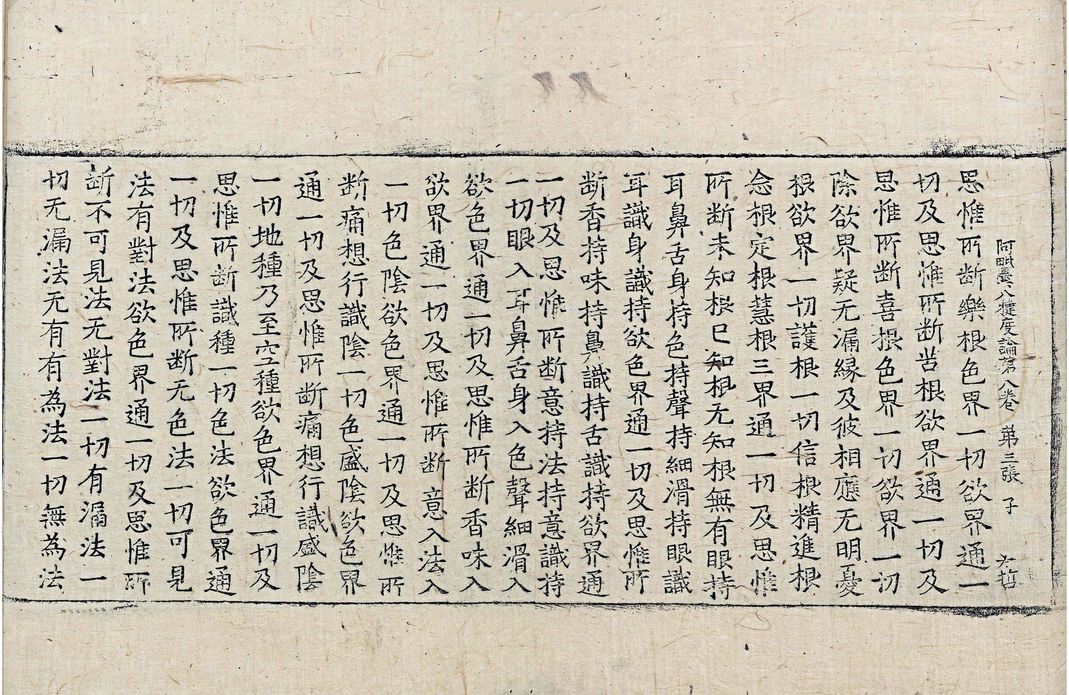 阿毗曇八揵度論第八卷　第三張　子
思惟所断樂根色界一切欲界通一
切及思惟所断苦根欲界通一切及
思惟所断喜根色界一切欲界一切
除欲界疑无漏縁及彼相應无明憂
根欲界一切護根一切信根精進根
念根定根慧根三界通一切及思惟
所断未知根已知根无知根無有眼持
耳鼻舌身持色持聲持細滑持眼識
耳識身識持欲色界通一切及思惟所
断香持味持鼻識持舌識持欲界通
一切及思惟所断意持法持意識持
一切眼入耳鼻舌身入色聲細滑入
欲色界通一切及思惟所断香味入
欲界通一切及思惟所断意入法入
一切色陰欲色界通一切及思惟所
断痛想行識陰一切色盛陰欲色界
通一切及思惟所断痛想行識盛陰
一切地種乃至空種欲色界通一切及
思惟所断識種一切色法欲色界通
一切及思惟所断无色法一切可見
法有對法欲色界通一切及思惟所
断不可見法无對法一切有漏法一
切无漏法无有有為法一切無為法